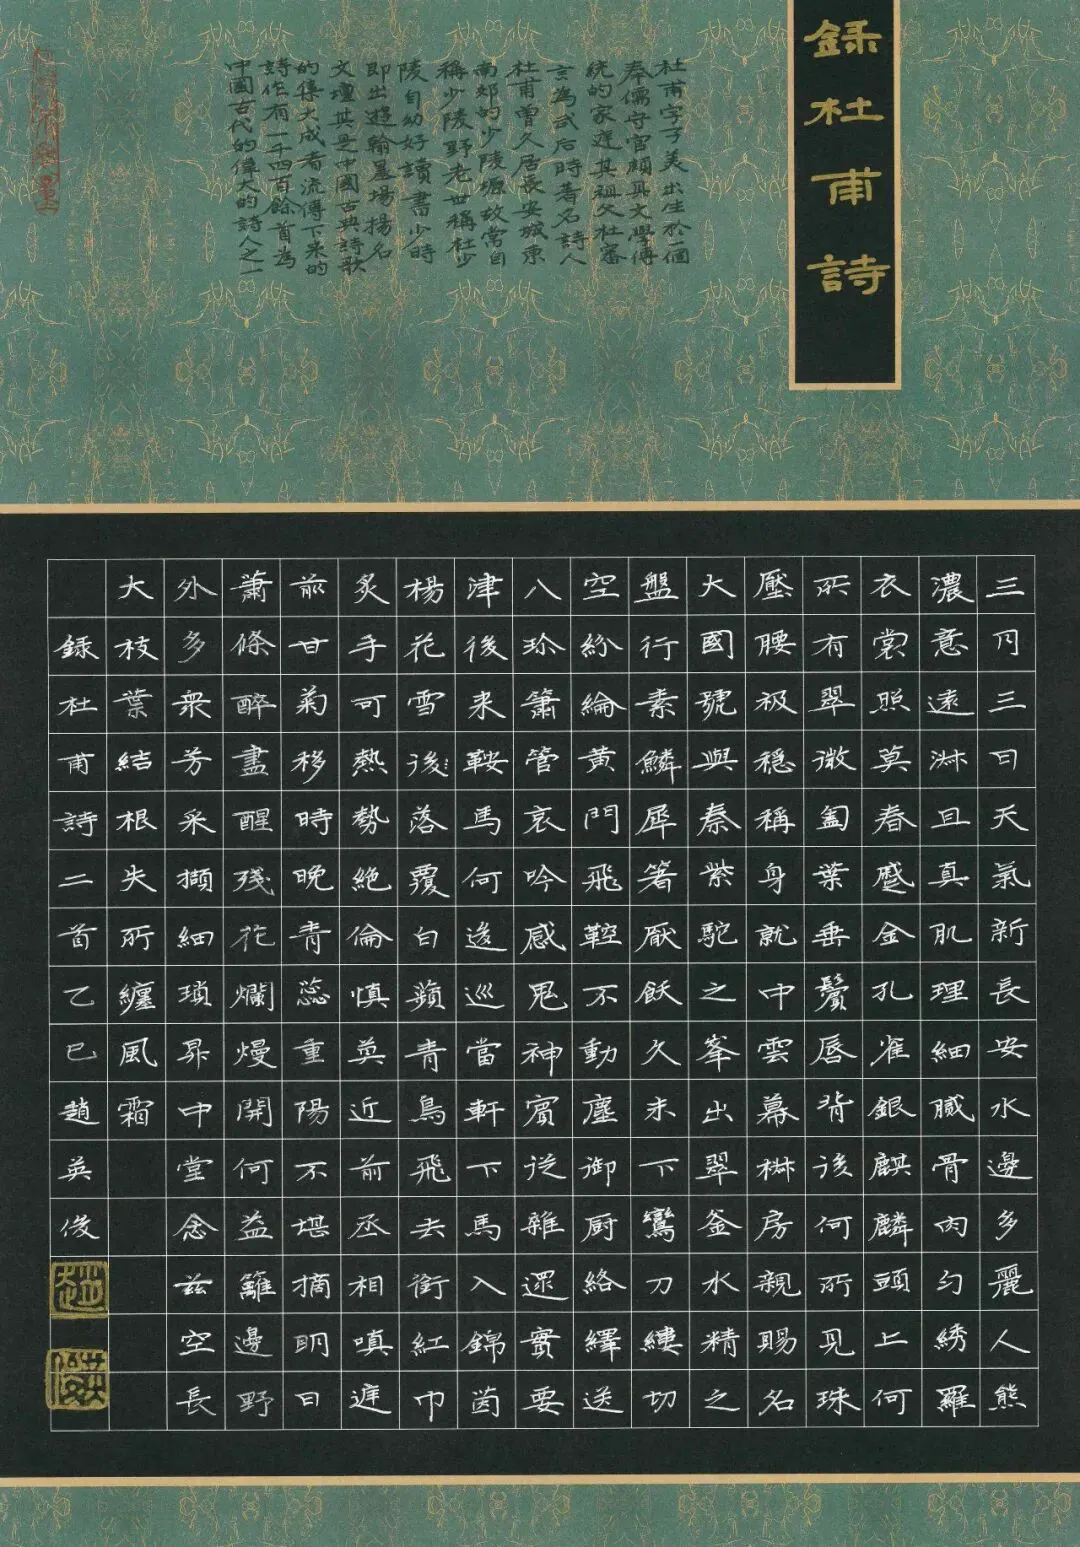 録杜甫詩
杜甫字子美出生於一個
奉儒守官頗具文學傳
統的家庭其祖父杜審
言為武后時著名詩人
杜甫曾久居長安城東
南郊的少陵塬故常自
稱少陵野老世稱杜少
陵自幼好讀書少時
即出遊翰墨場揚名
文壇甚是中國古典詩歌
的集大成者流傳下来的
詩作有一千四百餘首為
中國古代的偉大的詩人之一
三月三日天氣新長安水邊多麗人熊
濃意遠淋且真肌理細膩骨肉勻綉羅
衣裳照莫春蹙金孔雀銀麒麟頭上何
所有翠微㔩葉垂鬢唇背後何所見珠
壓腰衱穩稱身就中雲幕椒房親賜名
大國號與秦紫駝之峯出翠釜水精之
盤行素鱗犀箸厭飫久未下鸞刀縷切
空紛綸黃門飛鞚不動塵御厨絡繹送
八珍簫管哀吟感鬼神賓從雜遝實要
津後来鞍馬何逡巡當軒下馬入錦茵
楊花雪後落覆白蘋青鳥飛去銜紅巾
炙手可熱勢絕倫慎莫近前丞相嗔庭
前甘菊移時晚青蕊重陽不堪摘明日
蕭條醉盡醒殘花爛熳開何益籬邊野
外多衆芳采擷細瑣昇中堂念茲空長
大枝葉結根失所纏風霜
録杜甫詩二首乙巳趙英俊
趙
英俊